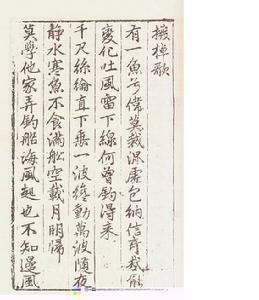 撥棹歌
有一魚兮偉莫裁混虛包納信奇哉能
變化吐風雷下線何曾釣得來
千尺絲綸直下垂一波纔動萬波隨夜
靜水寒魚不食滿舩空載月明歸
莫學他家弄釣船海風起也不知邊風